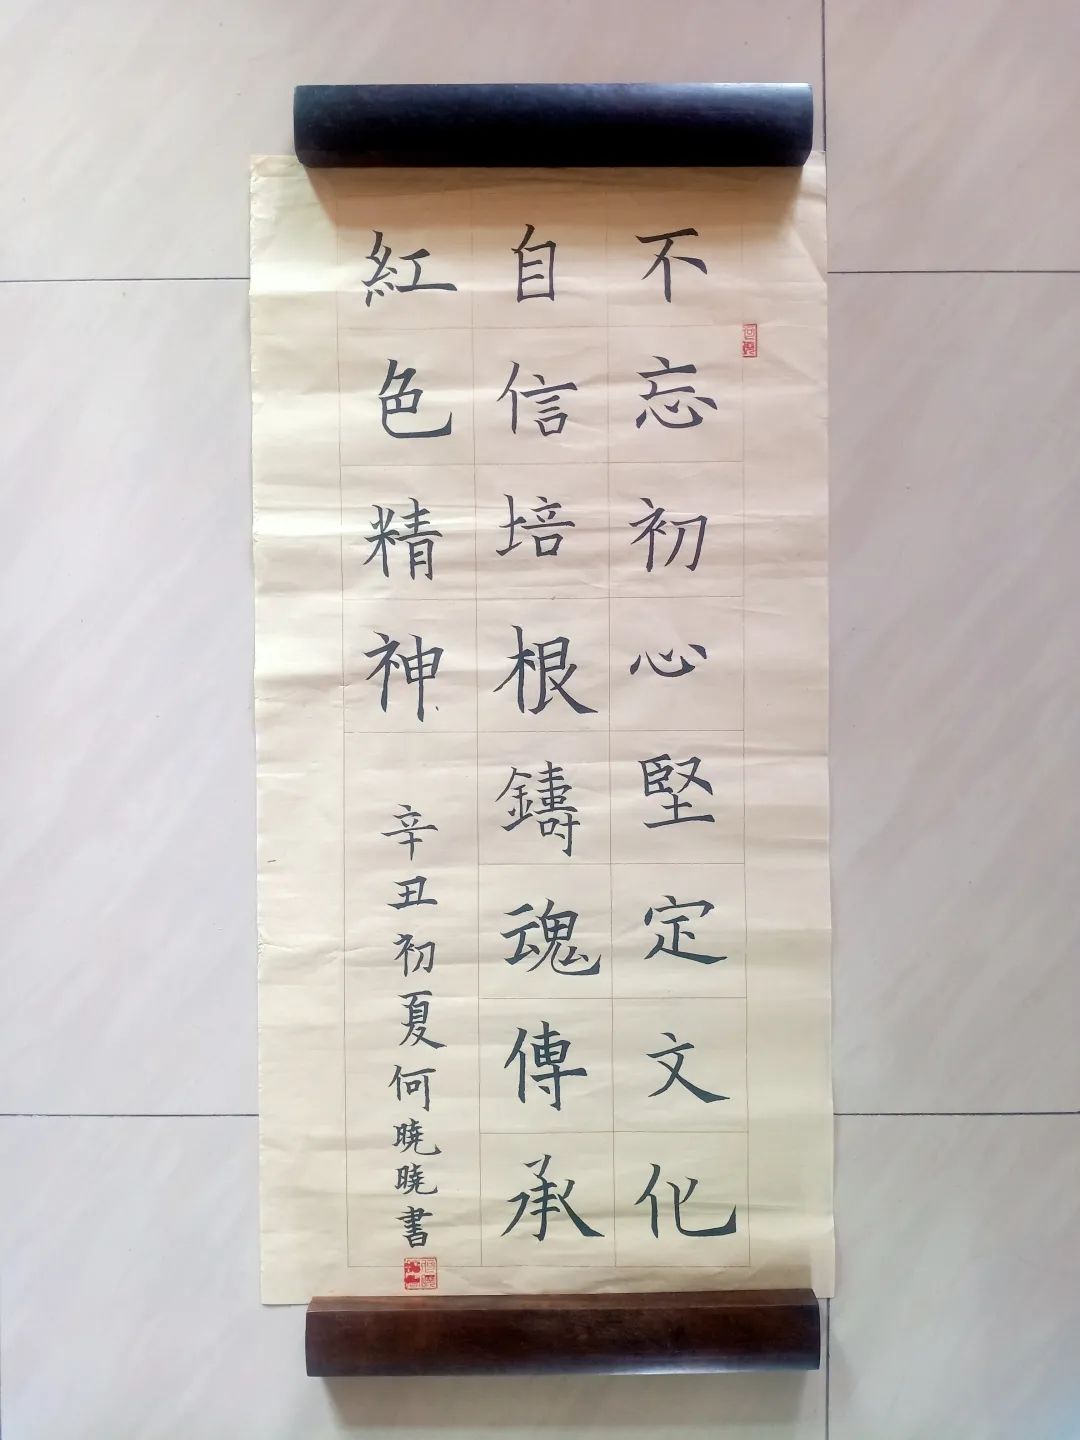 不忘初心堅定文化
自信培根鑄魂傳承
紅色精神
辛丑初夏何曉曉書